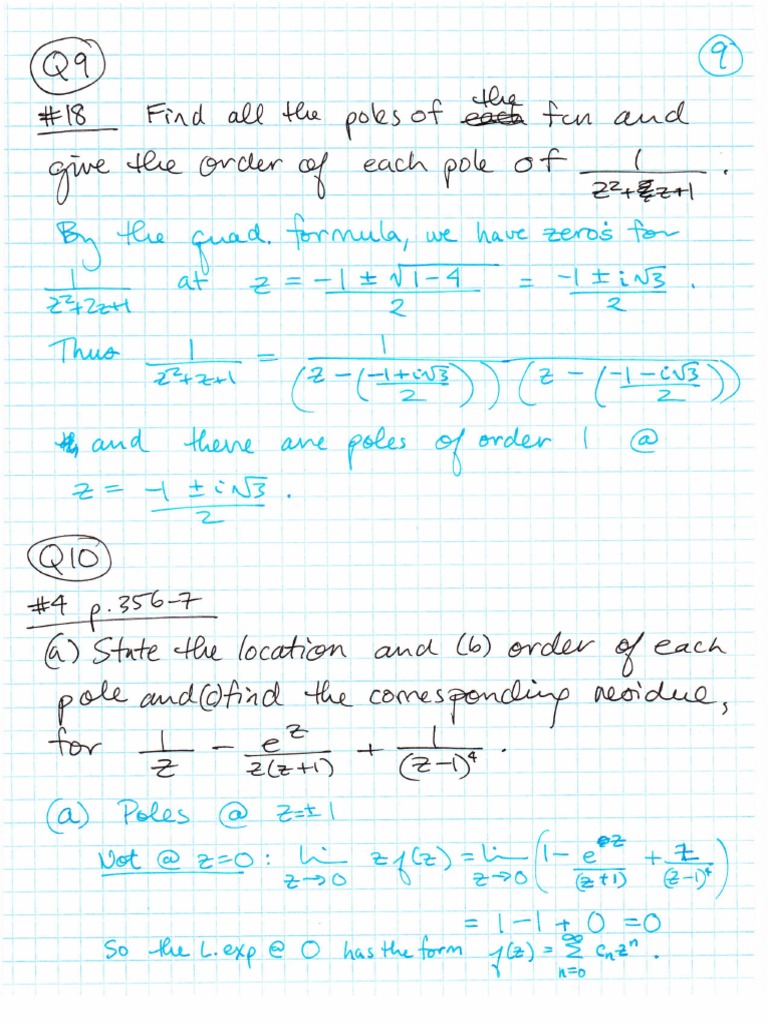 Q9
9
#18 Find all the poles of the fcn and
give the order of each pole of 1/(z²+z+1).
By the quad. formula, we have zeros for
1/(z²+2z+1) at z = (-1 ± √(1-4))/2 = (-1 ± i√3)/2.
Thus 1/(z²+z+1) = 1/((z - (-1+i√3)/2)) (z - (-1-i√3)/2))
and there are poles of order 1 @
z = (-1 ± i√3)/2.
Q10
#4 p.356-7
(a) State the location and (b) order of each
pole and (c) find the corresponding residue,
for 1/z - e^z/(z(z+1)) + 1/(z-1)⁴.
(a) Poles @ z=±1
Not @ z=0: lim z→0 z f(z) = lim z→0 (1 - e^z/(z+1) + z/(z-1)⁴)
= 1-1+0 =0
So the L.exp @ 0 has the form f(z) = ∞Σn=0 cₙzⁿ.